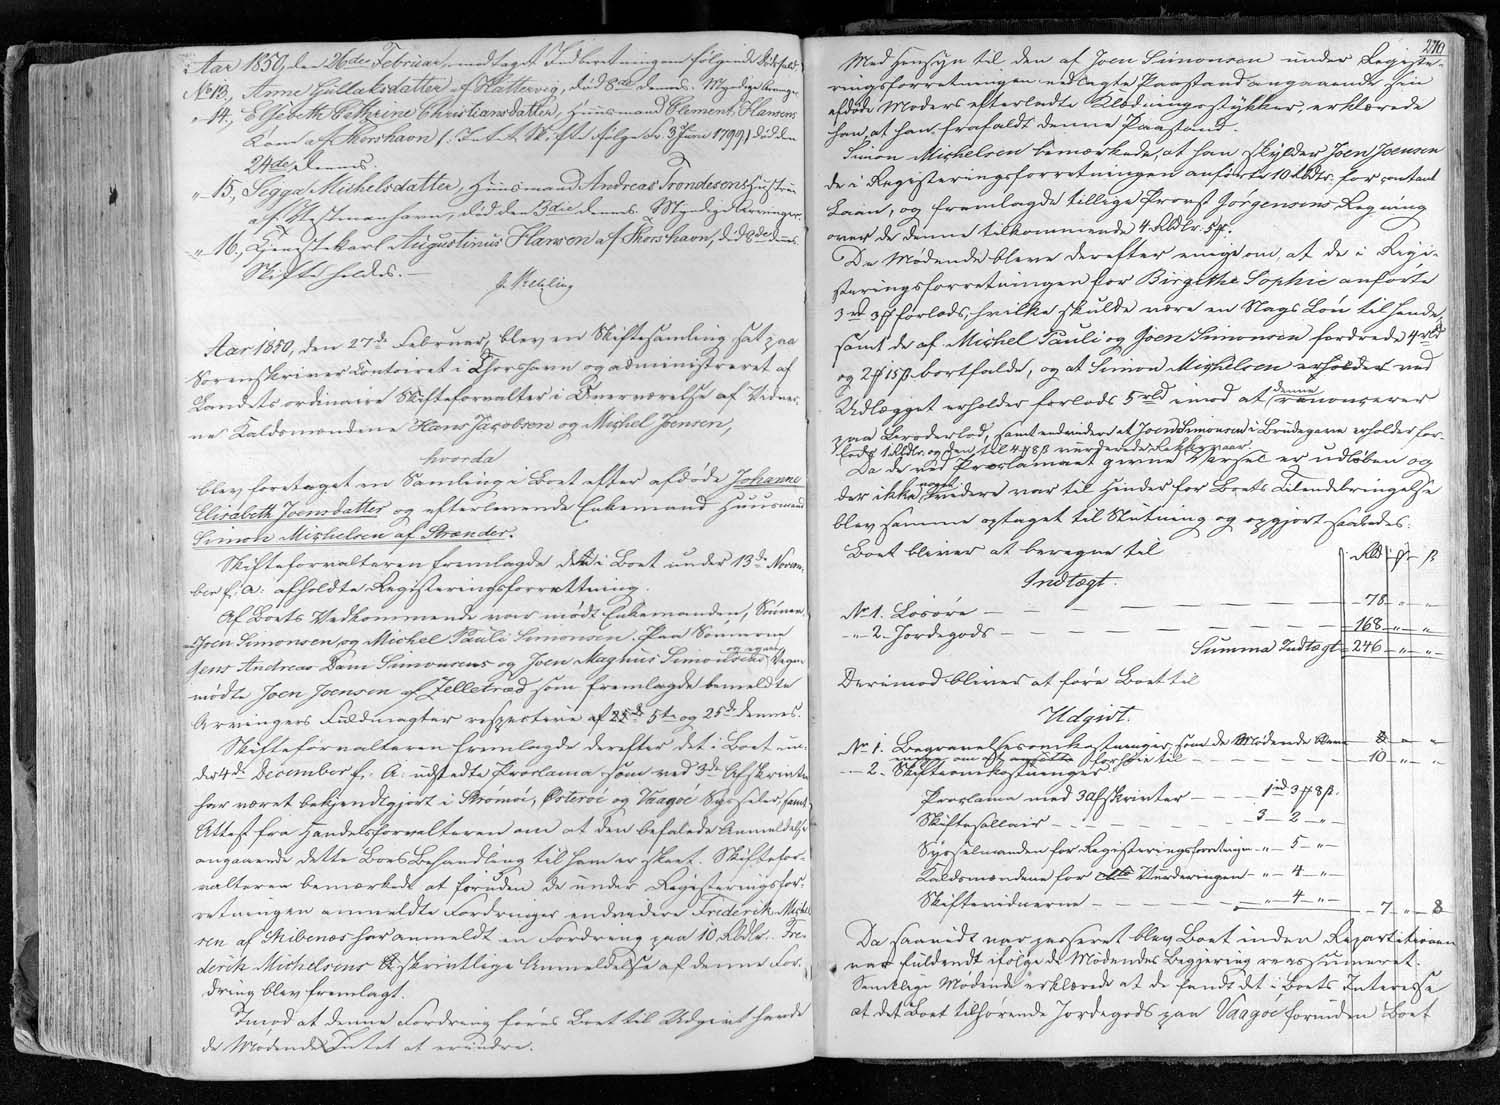 Aar 1850, den 26de Februar, modtaget Indberetningen følgende Dødsfald.
No 13., Anne Gullaksdatter af Hattervig, død 8de dennes. Myndige Arvinger.
" 14., Elsebeth Cathrine Christiansdatter, Huusmand Clement Hansens
Kone af Thorshavn død den
24de dennes.
" 15., Segga Michelsdatter, Huusmand Andreas Trondesens Hustrue
af Vestmanhavn, død den 3die dennes. Myndige Arvinger.
" 16., Tjenestekarl Augustinus Hansen af Thorshavn, død 8de dennes.
Skifte holdes. —
Aar 1850, den 27de Februar, blev en Skiftesamling sat paa
Sorenskriver Contoiret i Thorshavn og administreret af
Landets ordinaire Skifteforvalter i Overværelse af Vidner-
ne Kaldsmændene Hans Jacobsen og Michel Joensen,
hvorda
blev foretaget en Samling i Boet efter afdøde Johanne
Elisabeth Joensdatter og efterlevende Enkemand Huusmand
Simon Michelsen af Strænder.
Skifteforvalteren fremlagde den i Boet under 13de Novem-
ber f. A. afholdte Registeringsforretning.
Af Boets Vedkommende var mødt Enkemanden, Sønnen
Joen Simonsen og Michel Pauli Simonsen. Paa Sønnerne
Jens Andreas Dam Simonsens og Joen Magnus Simonsens og egne Vegne
mødte Joen Joensen af Selletræd som fremlagde bemeldte
Arvingers Fuldmagter respective af 5te og 25de dennes.
Skifteforvalteren fremlagde derefter det i Boet un-
der 4de December f. A. udstedte Proclama som ved 3de Afskrifter
har været bekjendtgjort i Strømø, Østerøe og Vaagøe Sysseler, samt
Attest fra Handelsforvalteren om at den befalede Anmeldelse
angaaende dette Boes Behandling til ham er skeet. Skiftefor-
valteren bemærkede at foruden de under Registeringsfor-
retningen anmeldte Fordringer endvidere Friderik Michel
sen af Skibenæs har anmeldt en Fordring paa 10 Rbdlr. Fre-
derik Michelsens skriftlige Anmeldelse af denne For-
dring blev fremlagt.
Imod at denne Fordring føres Boet til Udgivt havde
de Mødende Intet at erindre.
270
Med Hensyn til den af Joen Simonsen under Registe-
ringsforretningen nedlagte Paastand angaaende sin
afdøde Moders efterladte Klædningsstykker, erklærede
han, at han frafaldt denne Paastand.
Simon Michelsen bemærkede, at han skylder Joen Joensen
de i Registeringsforretningen anførte 10 Rbdlr. for contant
Laan, og fremlagde tillige Provst Jørgensens Regning
over de denne tilkommende 4 Rbdlr. 5 ß.
De Mødende bleve derefter enige om, at de i Regi-
steringsforretningen for Birgithe Sophie anførte
3 rd 3 ℔ forlods, hvilke skulde være en Slags Løn til hende,
samt de af Michel Pauli og Joen Simonsen fordrede 4 rbd
og 2 ℔ 15 ß bortfalde, og at Simon Michelsen erholder ved
Udlægget erholder forlods 5 rbd imod at denne renoncerer
paa Broderlod, samt endvidere at Joen Simonsen i Brudegave erholder for-
lods 1 Rbdlr. og den til 4 ℔ 8 ß vurderede
Da de ved Proclamaet givne Varsel er udløben og
der ikke noget videre var til Hinder for Boets Tilendebringelse
blev samme optaget til Slutning og opgjort saaledes:
Boet bliver at beregne til
Rbd ℔ ß
Indtægt.
No 1. Løsøre — 78 " "
" 2. Jordegods — 168 " "
Summa Indtægt 246 " "
Derimod bliver at føre Boet til
Udgivt.
No 1. Begravelsesomkostninger, som de Mødende
til — 10 " "
" 2. Skifteomkostninger
Proclama med 3 Afskrifter — 1 rd 3 ℔ 8 ß.
Skiftesallair — 3 — 2 — "
Sysselmanden for Registeringsforretningen — " — 5 — "
Kaldsmændene for Vurderingen — " — 4 — "
Skiftevidnerne — " — 4 — "
7 — " — 8
Da saavidt var passeret blev Boet inden Repartitionen
var fuldendt ifølge de Mødendes Begjering reassumeret.
Samtlige Mødende erklærede at de fandt det i Boets Interesse
at det Boet tilhørende Jordegods paa Vaagøe foruden Boet